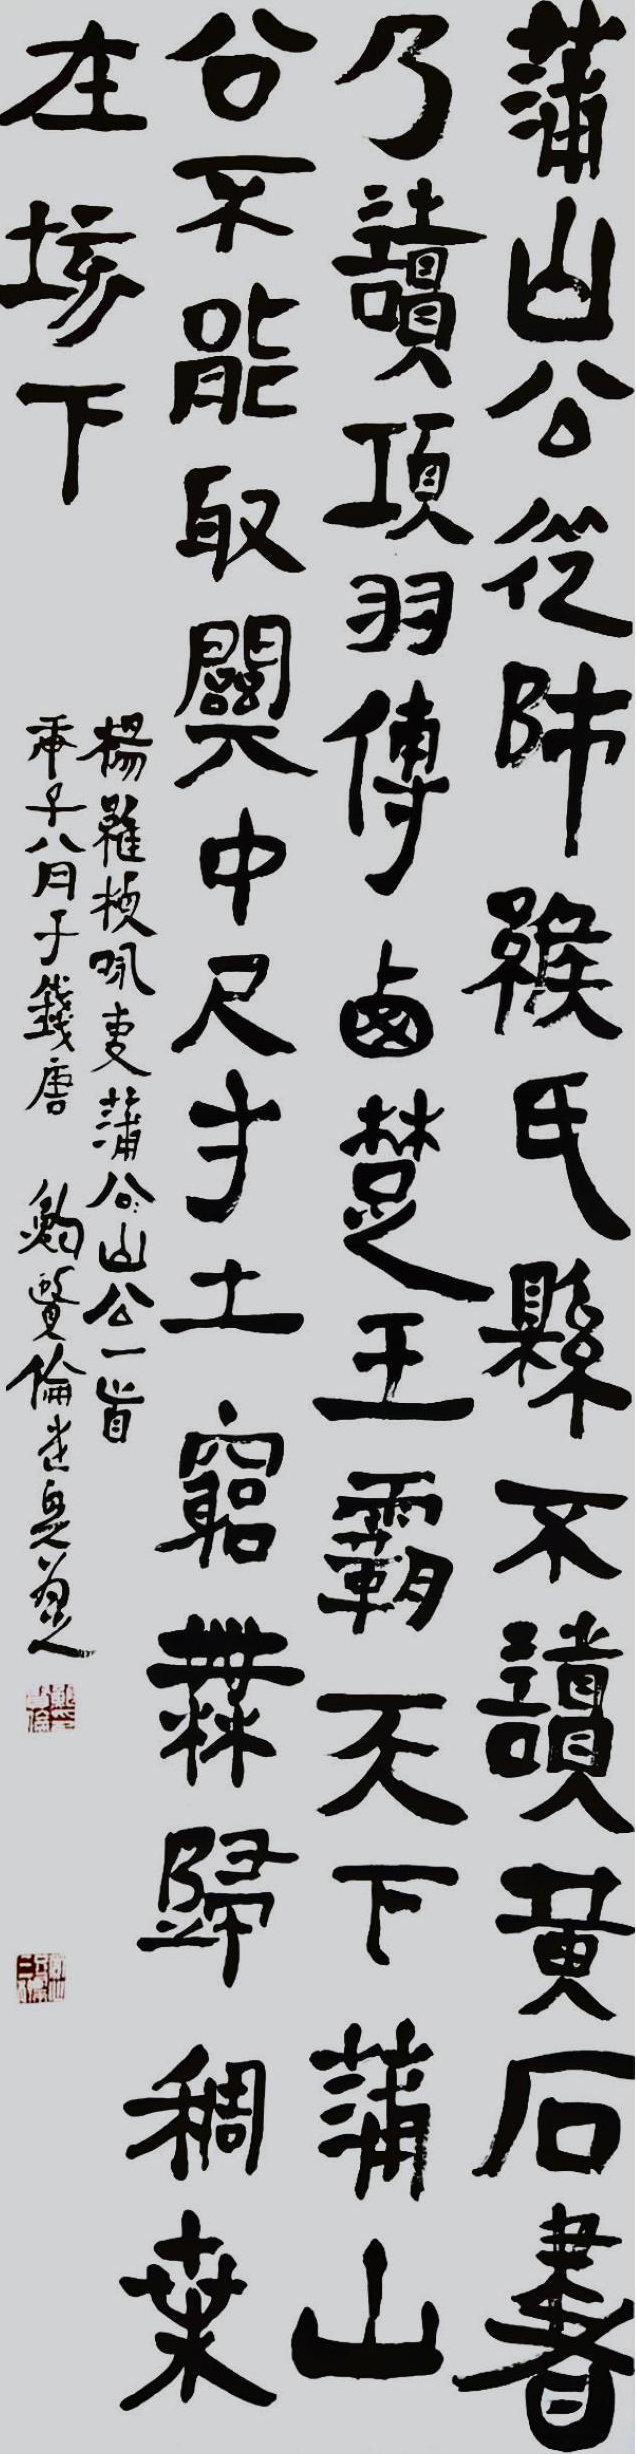 蒲山公從師緱氏縣不讀黃石書
乃讀項羽傳鹵楚王霸天下蒲山
公不能取關中尺寸土窮無歸稠桑
在垓下
楊維楨詠史蒲公山公一首
庚子八月于錢唐 賢倫